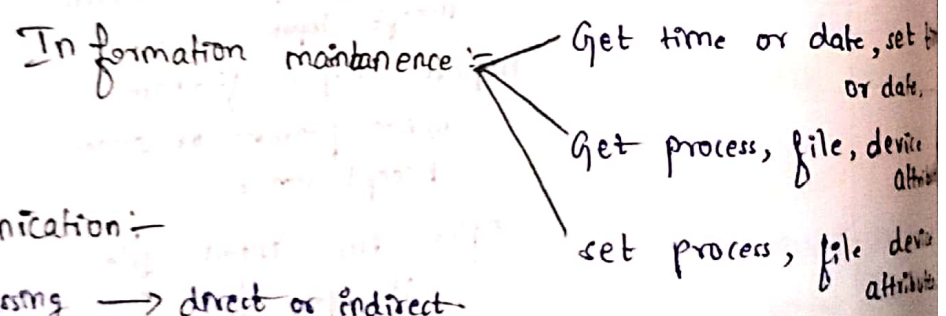 Information maintanence :-
Get time or date, set
or date,
Get process, file, device
set process, file device
nication :-
→ direct or indirect